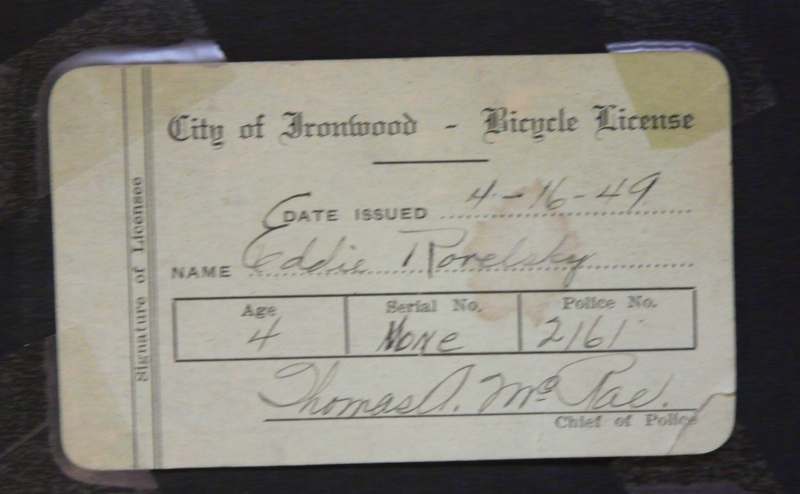 City of Ironwood - Bicycle License
DATE ISSUED 4-16-49
NAME Eddie Rovelsky
Age Serial No. Police No.
4 None 2161
Thomas A. McRae.
Chief of Police
Signature of Licensee